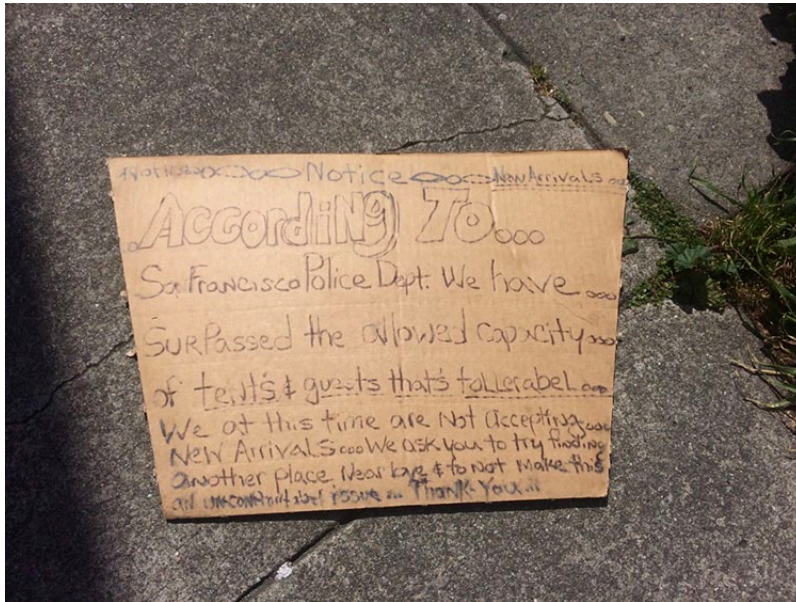 Notice New Arrivals...
.According To...
San Francisco Police Dept. We have...
Surpassed the allowed capacity...
of tent's & guests that's tollerabel...
We at this time are Not accepting...
New Arrivals...We ask you to try finding
another place. Near love & to Not make this
an issue... Thank-You...